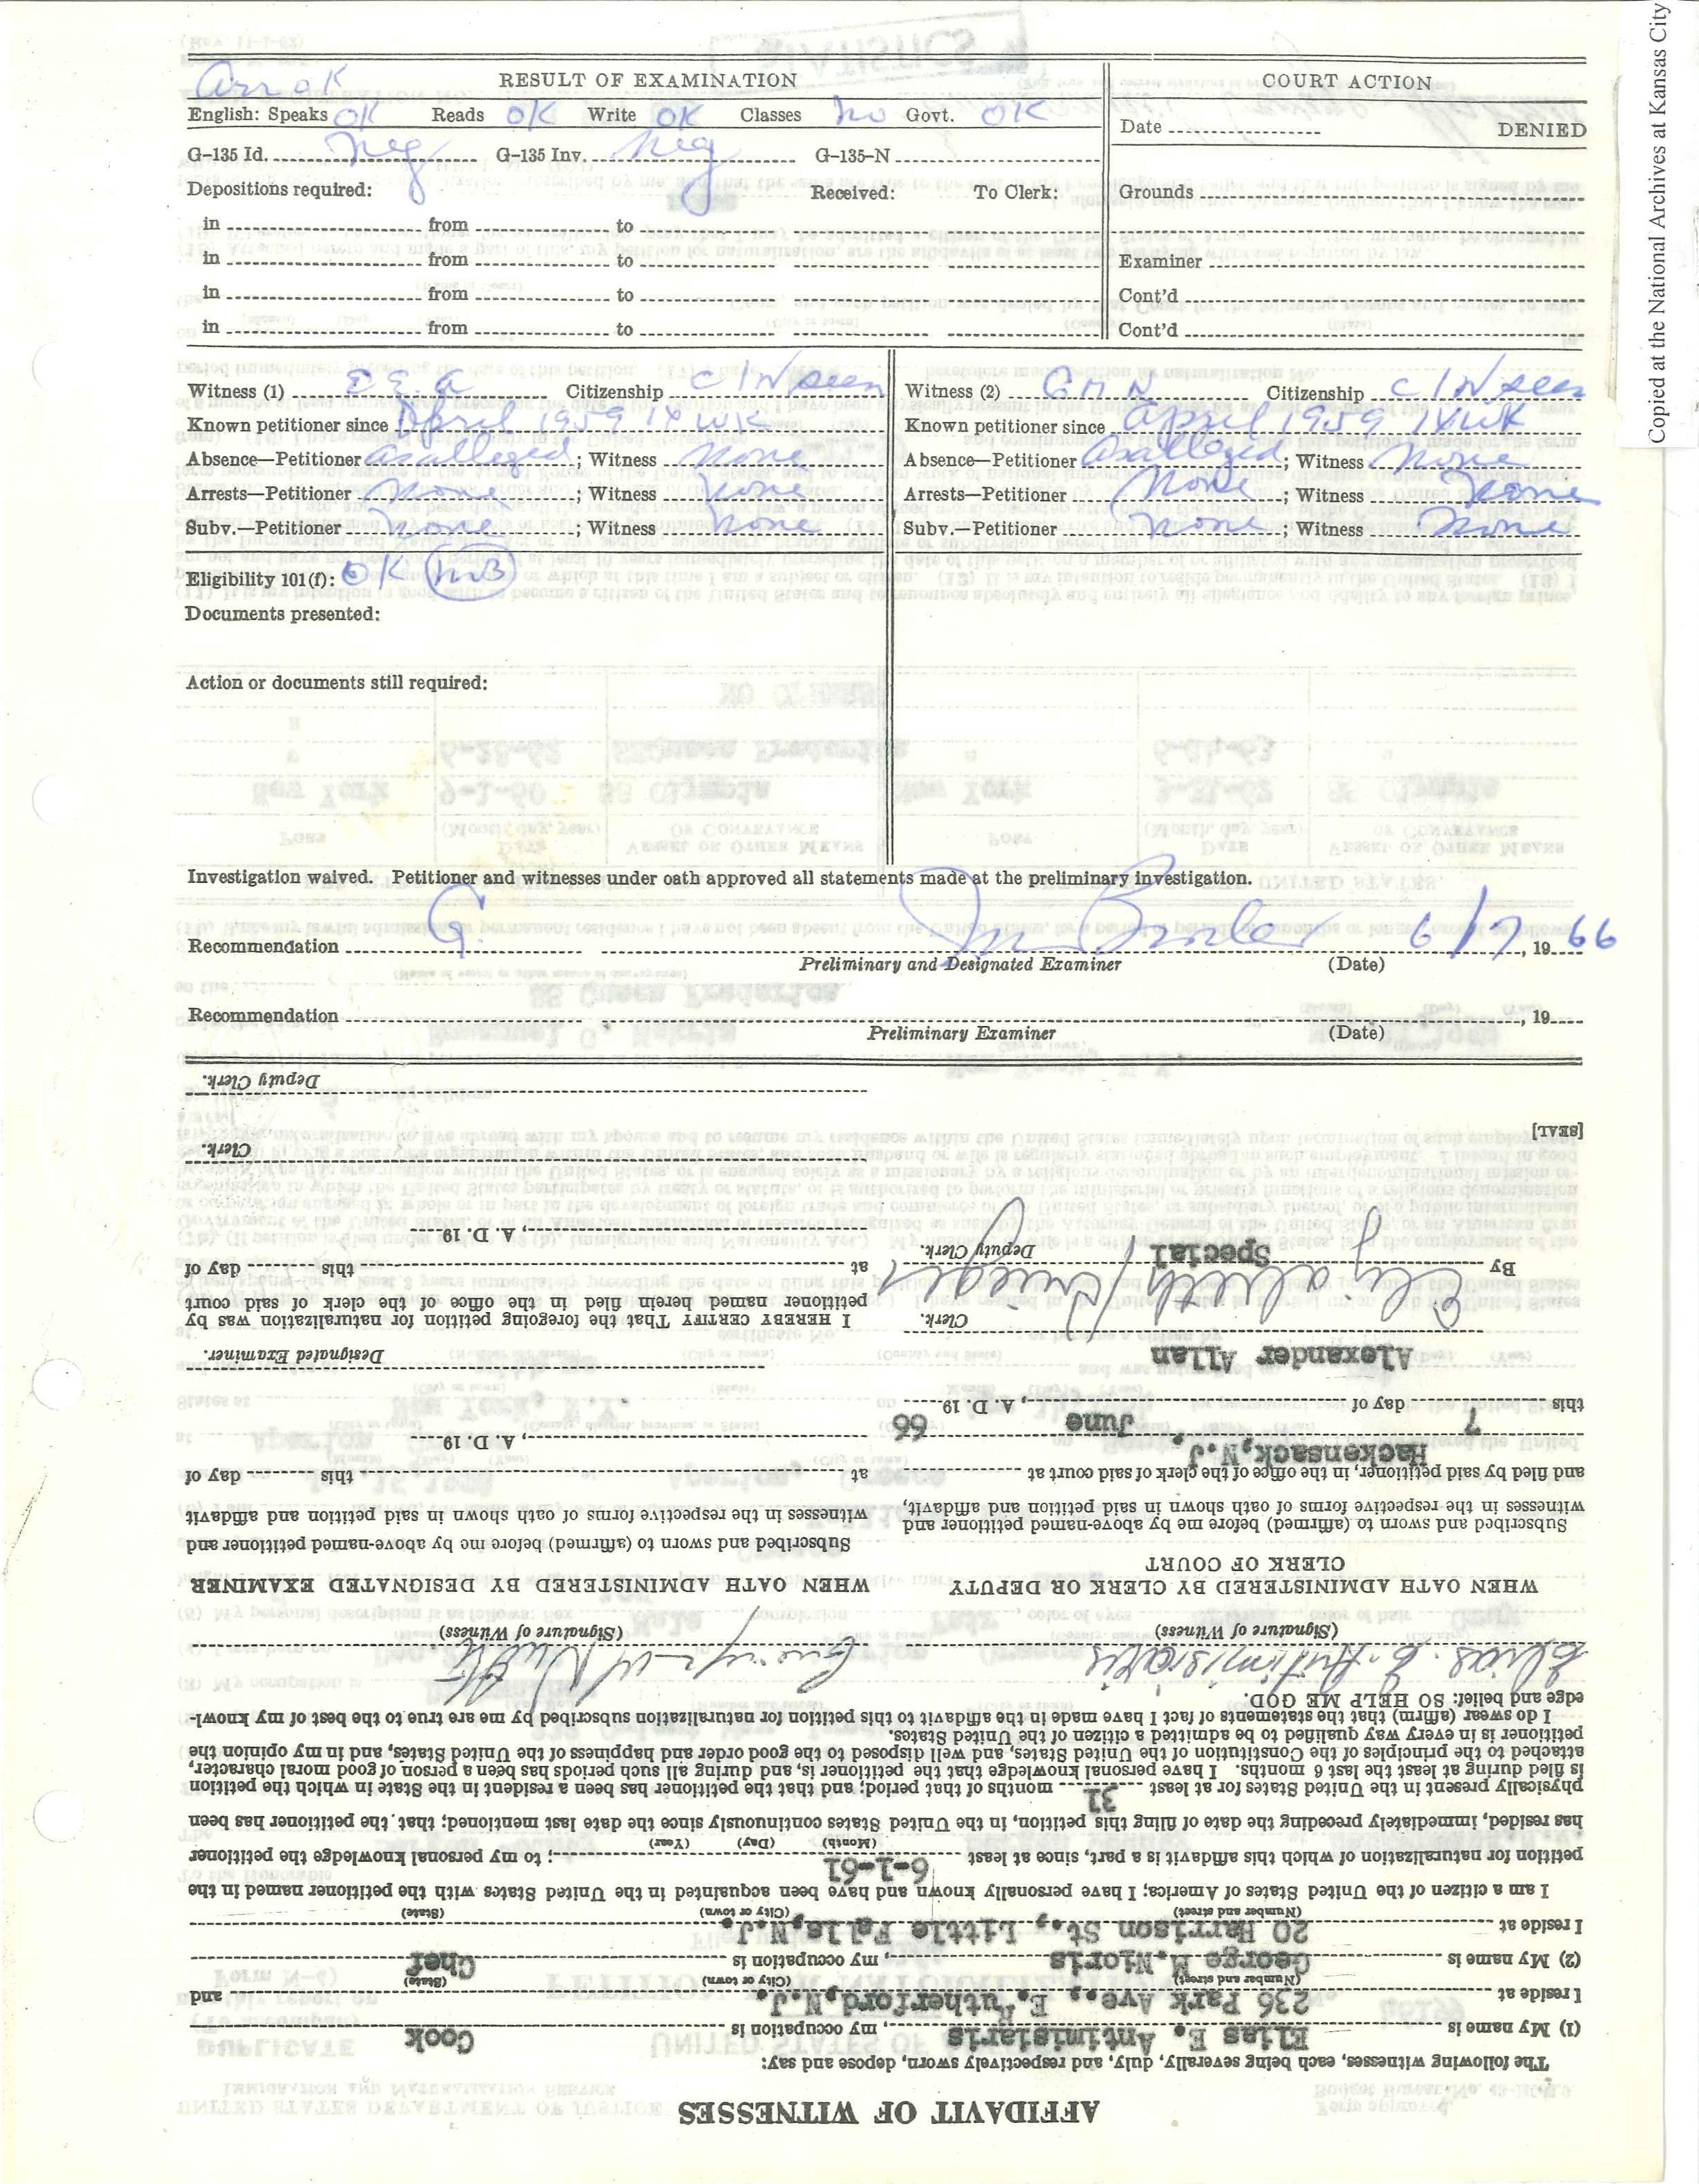 Copied at the National Archives at Kansas City
Arr OK
RESULT OF EXAMINATION
English: Speaks OK Reads OK Write OK Classes No Govt. OK
G–135 Id. Neg G–135 Inv. Neg G–135–N
Depositions required: Received: To Clerk:
in from to
in from to
in from to
in from to
COURT ACTION
Date DENIED
Grounds
Examiner
Cont'd
Cont'd
Witness (1) E E. A Citizenship C IN seen
Known petitioner since April 1959 1 X WK
Absence—Petitioner As alleged; Witness None
Arrests—Petitioner None; Witness None
Subv.—Petitioner None; Witness None
Eligibility 101(f): OK MB
Documents presented:
Action or documents still required:
Witness (2) G M N Citizenship C IN seen
Known petitioner since April 1959 1X WK
Absence—Petitioner As alleged; Witness None
Arrests—Petitioner None; Witness None
Subv.—Petitioner None; Witness None
Investigation waived. Petitioner and witnesses under oath approved all statements made at the preliminary investigation.
Recommendation G. 6/7, 19 66
Preliminary and Designated Examiner (Date)
Recommendation , 19
Preliminary Examiner (Date)
AFFIDAVIT OF WITNESSES
The following witnesses, each being severally, duly, and respectively sworn, depose and say:
(1) My name is Elias E. Antimisiaris, my occupation is Cook
I reside at 236 Park Ave., E. Rutherford, N.J. and
(Number and street) (City or town) (State)
(2) My name is George M. Nioris, my occupation is Chef
I reside at 20 Harrison St., Little Falls, N.J.
(Number and street) (City or town) (State)
I am a citizen of the United States of America; I have personally known and have been acquainted in the United States with the petitioner named in the
petition for naturalization of which this affidavit is a part, since at least 6-1-61; to my personal knowledge the petitioner
(Month) (Day) (Year)
has resided, immediately preceding the date of filing this petition, in the United States continuously since the date last mentioned; that the petitioner has been
physically present in the United States for at least 31 months of that period; and that the petitioner has been a resident in the State in which the petition
is filed during at least the last 6 months. I have personal knowledge that the petitioner is, and during all such periods has been a person of good moral character,
attached to the principles of the Constitution of the United States, and well disposed to the good order and happiness of the United States, and in my opinion the
petitioner is in every way qualified to be admitted a citizen of the United States.
I do swear (affirm) that the statements of fact I have made in the affidavit to this petition for naturalization subscribed by me are true to the best of my knowl-
edge and belief: SO HELP ME GOD.
Elias. E. Antimisiaris
(Signature of Witness) (Signature of Witness)
WHEN OATH ADMINISTERED BY CLERK OR DEPUTY
CLERK OF COURT
Subscribed and sworn to (affirmed) before me by above-named petitioner and
witnesses in the respective forms of oath shown in said petition and affidavit,
and filed by said petitioner, in the office of the clerk of said court at
Hackensack, N.J.
this 7 day of June, A. D. 19 66
Alexander Allan
Clerk.
By Elizabeth Krieger
Special Deputy Clerk.
[SEAL]
WHEN OATH ADMINISTERED BY DESIGNATED EXAMINER
Subscribed and sworn to (affirmed) before me by above-named petitioner and
witnesses in the respective forms of oath shown in said petition and affidavit
at this day of
, A. D. 19
Designated Examiner.
I HEREBY CERTIFY That the foregoing petition for naturalization was by
petitioner named herein filed in the office of the clerk of said court
at this day of
, A. D. 19
Clerk.
Deputy Clerk.